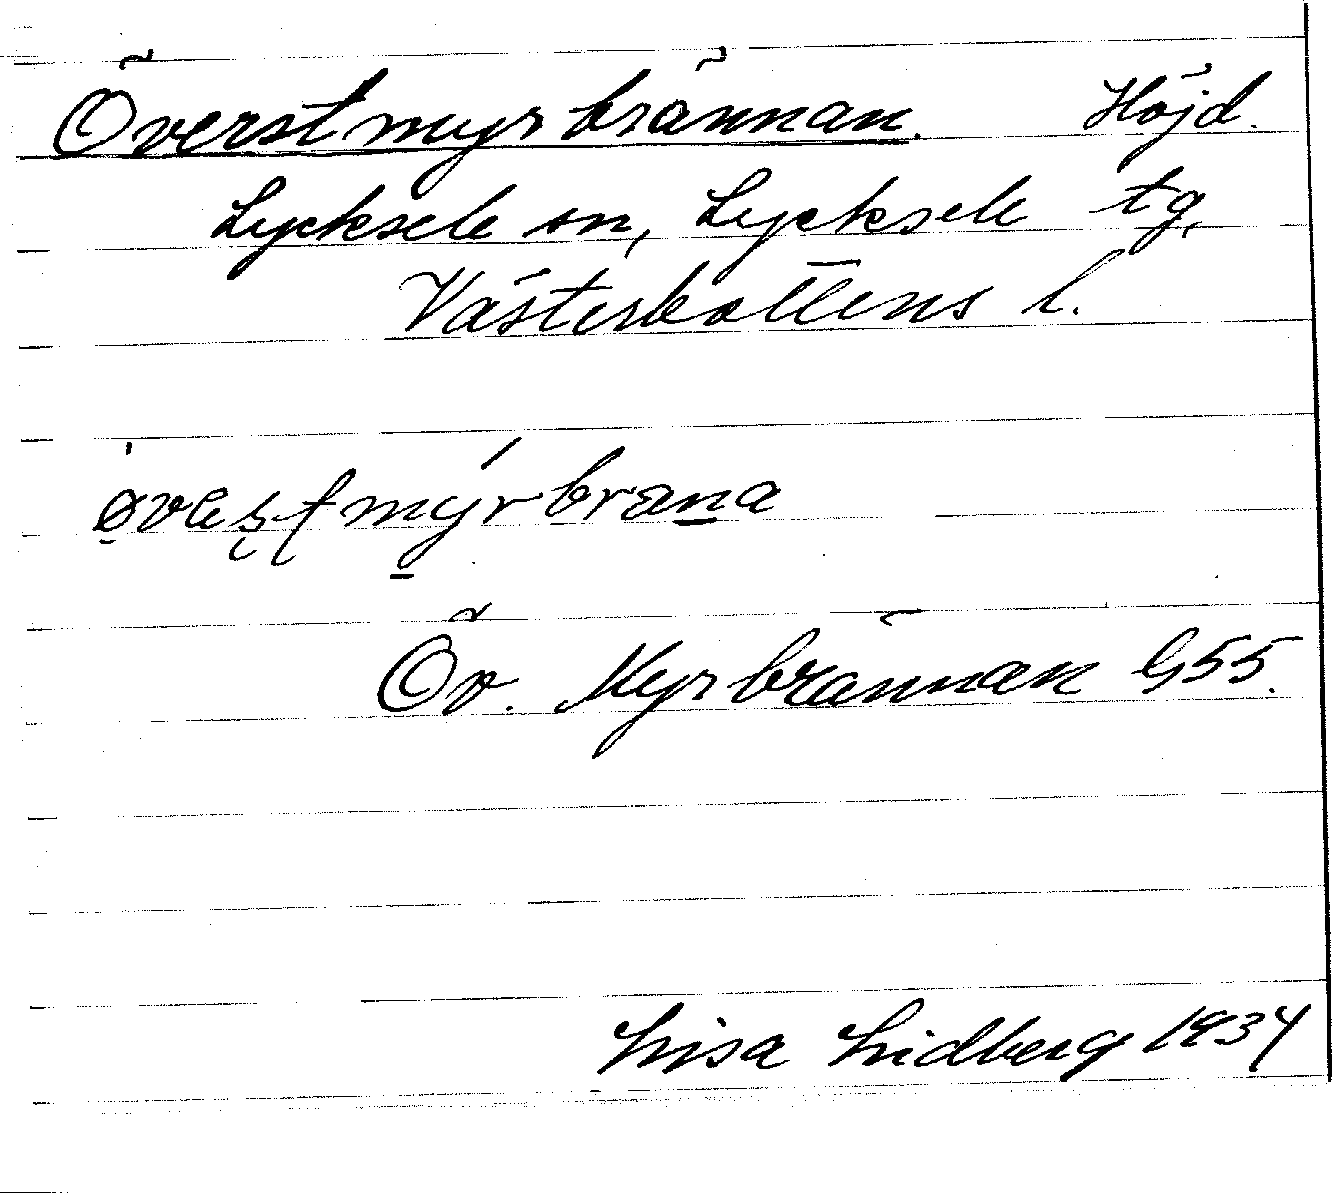 Överstmyrbrännan. Höjd.
Lycksele sn, Lycksele tg,
Västerbottens l.
Öv. Myrbrännan G55.
Lisa Lidberg 1934